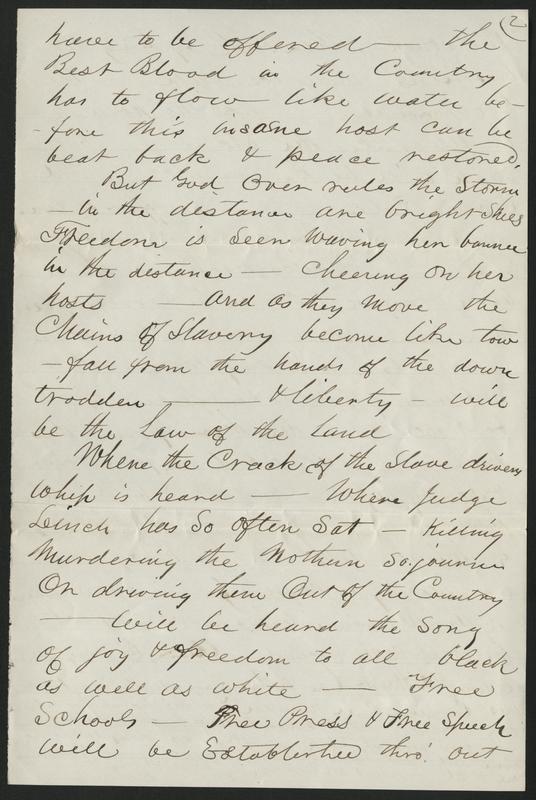 (2
have to be offered — the
Best Blood in the Country
has to flow like water be-
-fore this insane host can be
beat back & peace restored,
But God Over rules the Storm
— in the distance are bright Skies
Freedom is Seen Waving her banner
in the distance — Cheering on her
hosts — and as they move the
Chains of Slavery become like tow
— fall from the hands of the down
trodden — & liberty — will
be the Law of the Land
Where the Crack of the Slave drivers
whip is heard — Where Judge
Leinch has So often Sat — Killing
Murdering the Nothern Sojourner
Or driving them Out of the Country
— will be heard the Song
of joy & freedom to all black
as well as white — Free
Schools — Free Press & Free Speech
will be Established thro' out